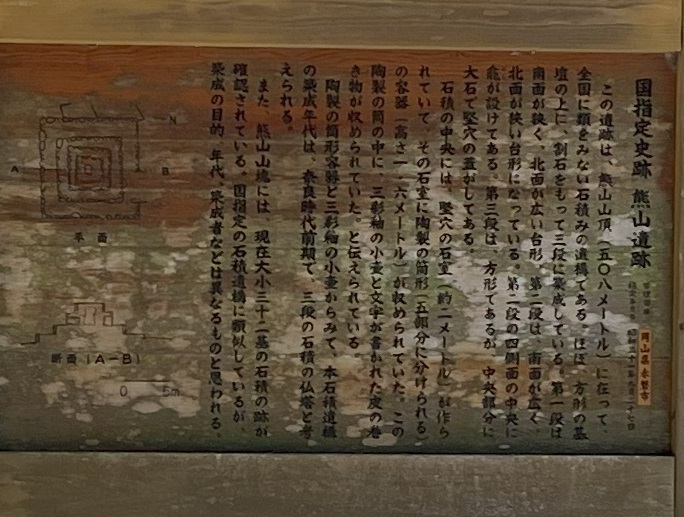 国指定史跡 熊山遺跡
岡山県赤磐市
この遺跡は、熊山山頂(五〇八メートル)に在って、
全国に類をみない石積みの遺構である。ほぼ、方形の基
壇の上に、割石をもって三段に築成している。第一段は
南面が狭く、北面が広い台形、第二段は、南面が広く、
北面が狭い台形になっている。第二段の四側面の中央に
龕が設けてある。第三段は、方形であるが、中央部分に
大石で竪穴の蓋がしてある。
石積の中央には、竪穴の石室(約二メートル)が作ら
れていて、その石室に陶製の筒形(五部分に分けられる)
の容器(高さ一.六メートル)が収められていた。この
陶製の筒の中に、三彩釉の小壷と文字が書かれた皮の巻
き物が収められていた。と伝えられている。
陶製の筒形容器と三彩釉の小壷からみて、本石積遺構
の築成年代は、奈良時代前期で、三段の石積の仏塔と考
えられる。
また、熊山山塊には、現在大小三十二基の石積の跡が
確認されている。国指定の石積遺構に類似しているが、
築成の目的、年代、築成者などは異なるものと思われる。
N
A
B
平面
断面(A-B)
0 5m